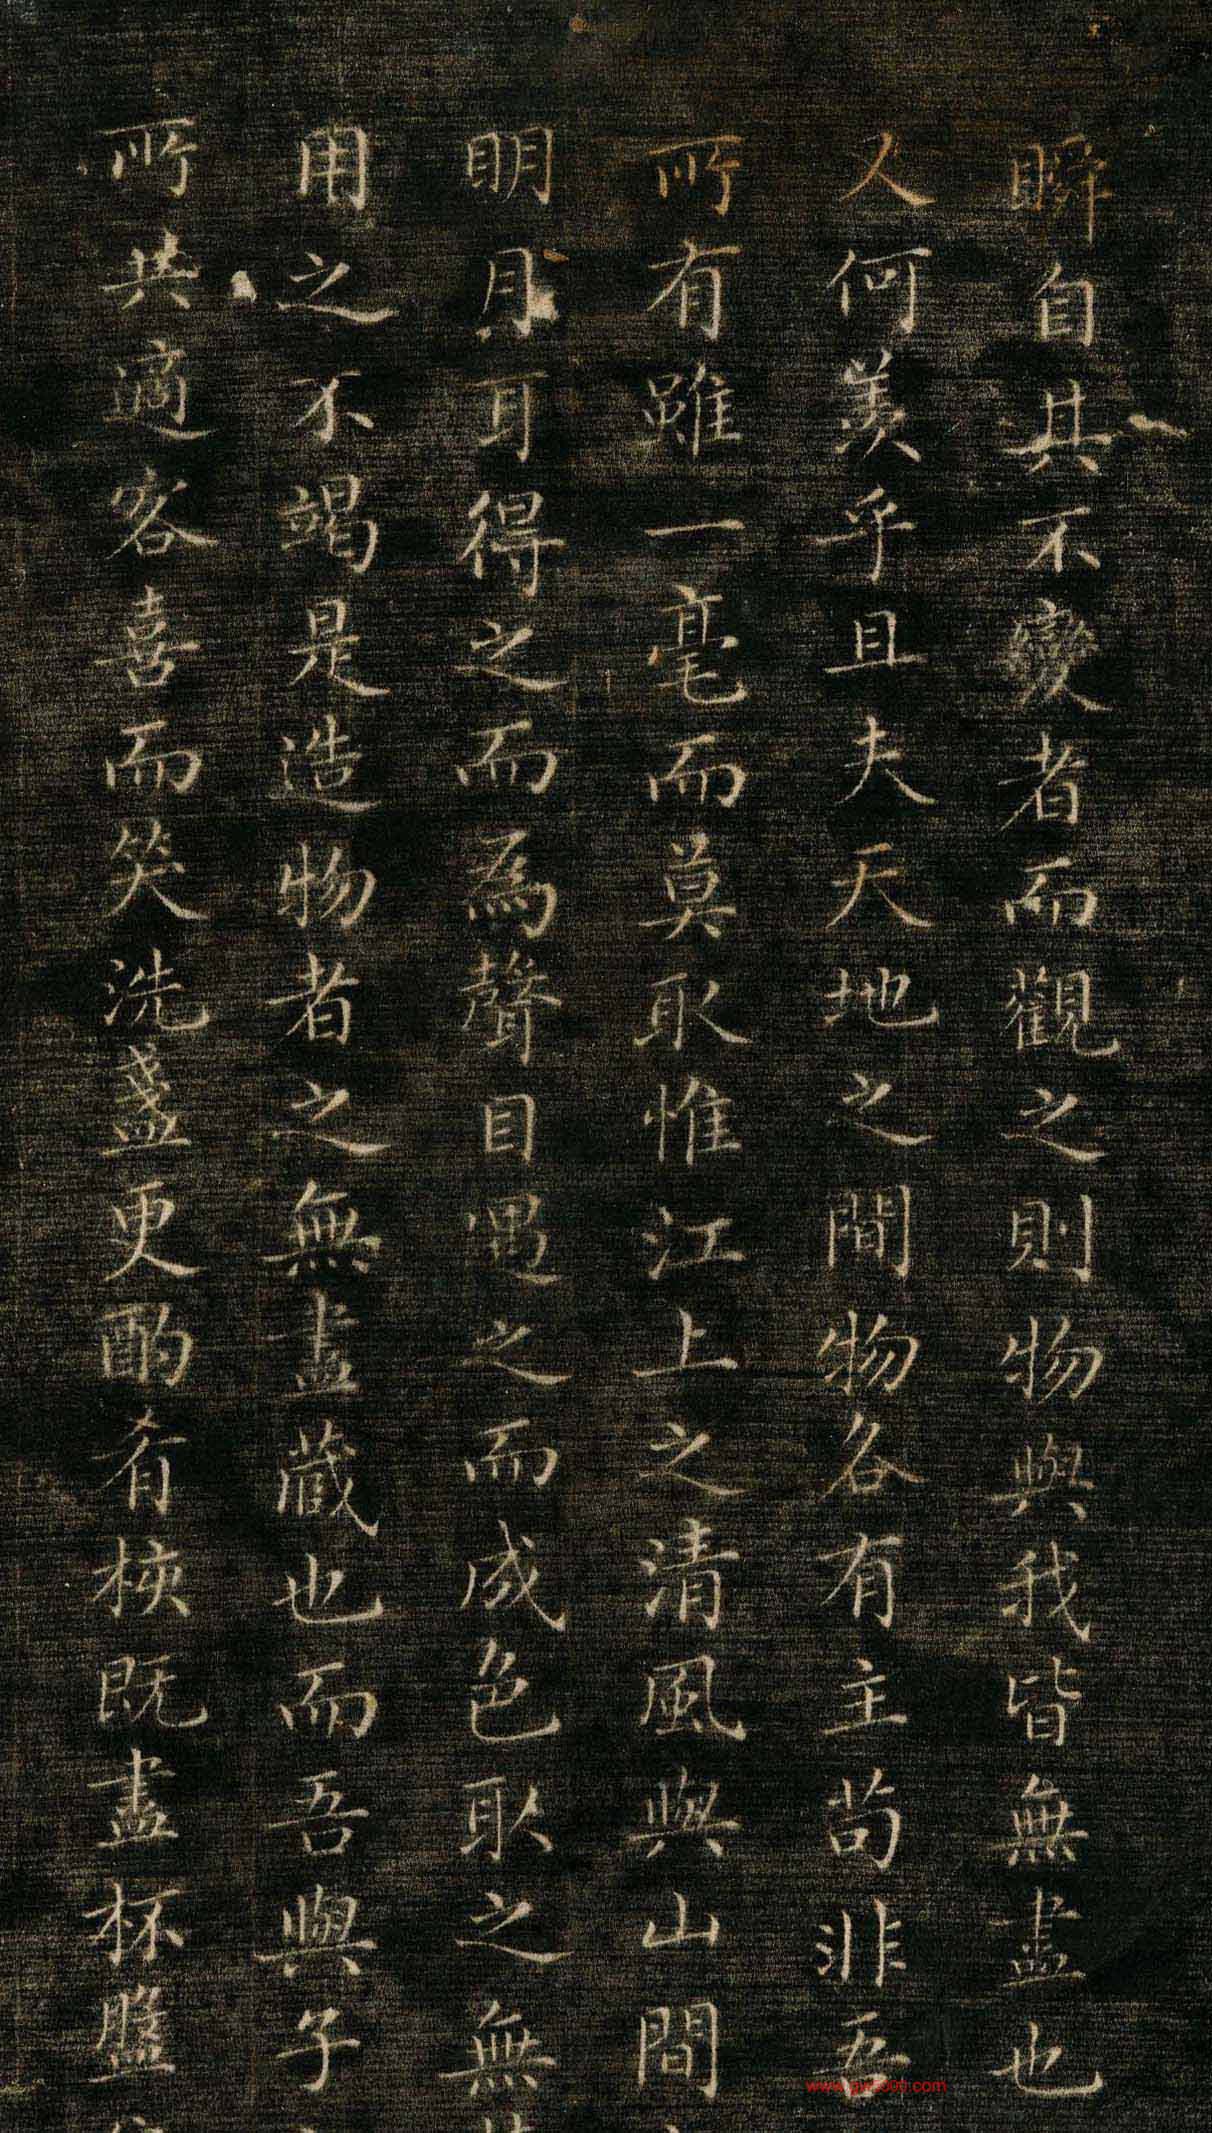 瞬自其不變者而觀之則物與我皆無盡也
又何羨乎且夫天地之間物各有主苟非吾
所有雖一毫而莫取惟江上之清風與山間
明月耳得之而為聲目遇之而成色取之無
用之不竭是造物者之無盡藏也而吾與子
所共適客喜而笑洗盞更酌肴核既盡杯盤
www.gw5000.com